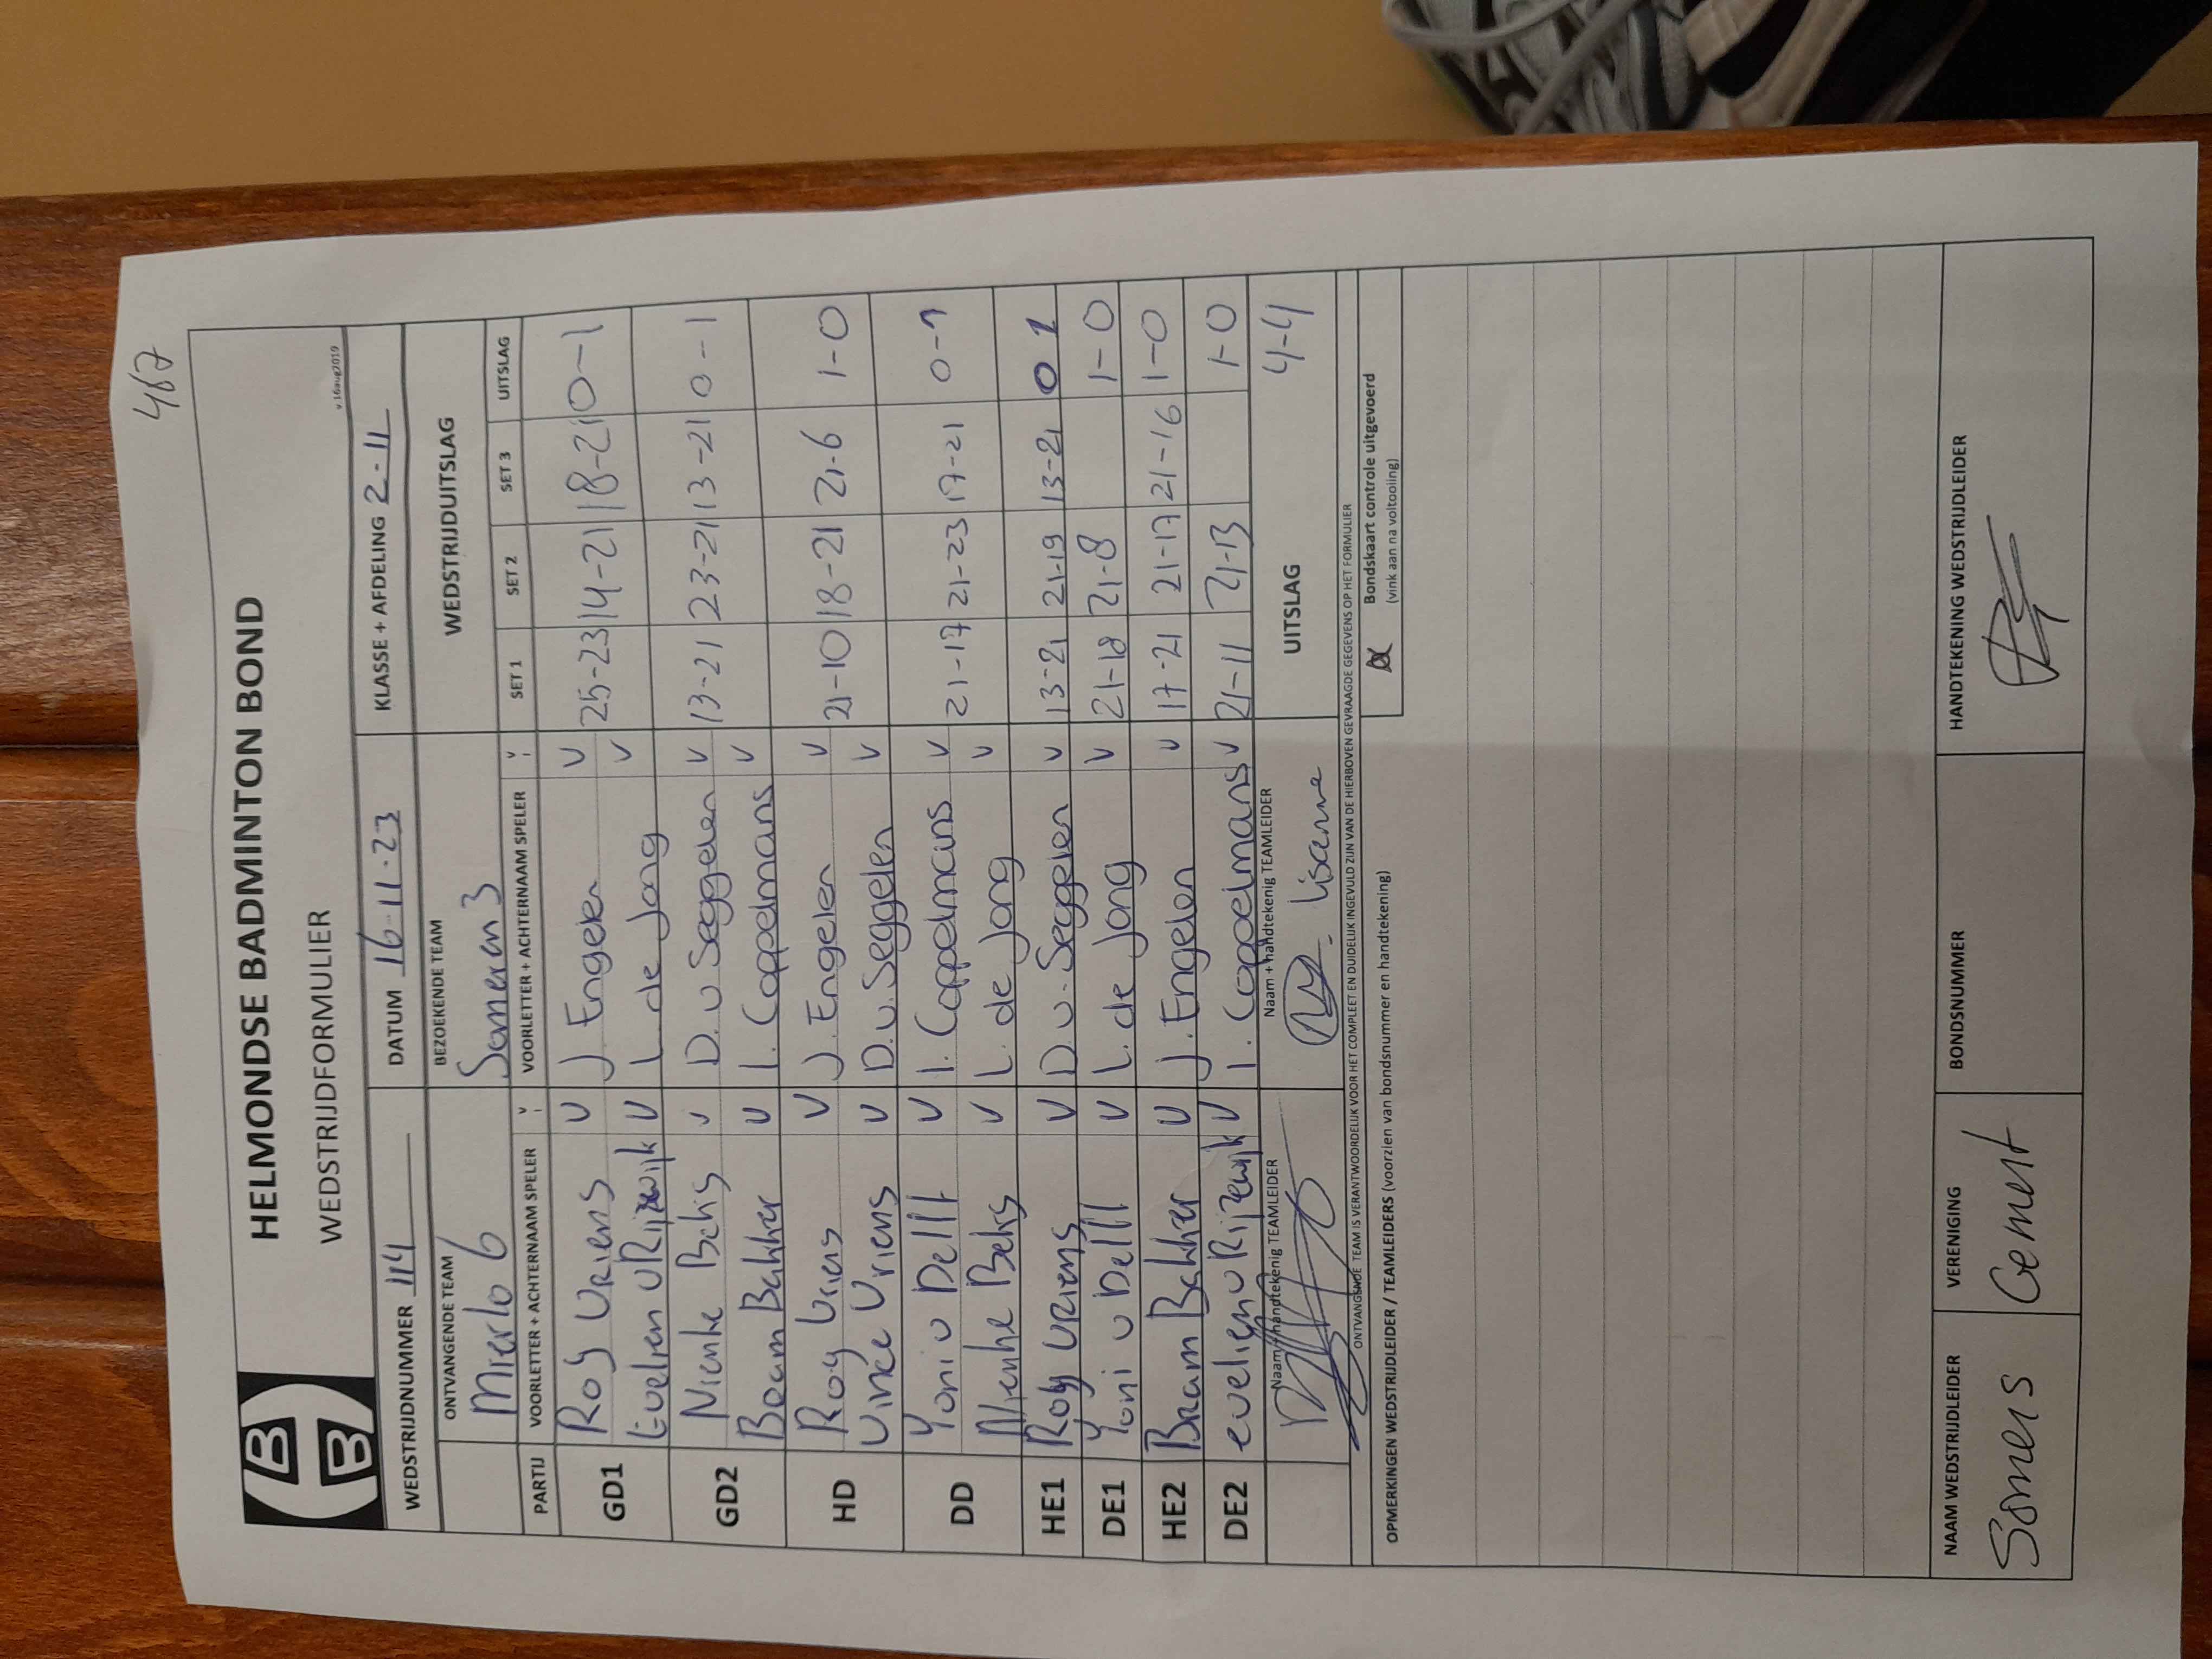 487
HELMONDSE BADMINTON BOND
WEDSTRIJDFORMULIER
v.16aug2019
WEDSTRIJDNUMMER 114 DATUM 16-11-23 KLASSE + AFDELING 2-11
ONTVANGENDE TEAM BEZOEKENDE TEAM WEDSTRIJDUITSLAG
Mierlo 6 Someren 3
PARTIJ VOORLETTER + ACHTERNAAM SPELER V VOORLETTER + ACHTERNAAM SPELER V SET 1 SET 2 SET 3 UITSLAG
GD1 Roy Vriens V J. Engelen V 25-23 14-21 18-21 0-1
Evelien v Rijzewijk V L. de Jong V
GD2 Nienke Beks V D. v Seggelen V 13-21 23-21 13-21 0-1
Braam Bakker V I. Coppelmans V
HD Roy Vriens V J. Engelen V 21-10 18-21 21-6 1-0
Vince Vriens V D. v. Seggelen V
DD Yoni v Delft V I. Coppelmans V 21-17 21-23 17-21 0-1
Nienke Beks V L. de Jong V
HE1 Roy Vriens V D. v. Seggelen V 13-21 21-19 13-21 0 1
DE1 Yoni v Delft V L. de Jong V 21-18 21-8 1-0
HE2 Braam Bakker V J. Engelen V 17-21 21-17 21-16 1-0
DE2 evelien v Rijzewijk V I. Coppelmans V 21-11 21-13 1-0
Naam + handtekenig TEAMLEIDER Naam + handtekenig TEAMLEIDER UITSLAG 4-4
Lisanne
ONTVANGENDE TEAM IS VERANTWOORDELIJK VOOR HET COMPLEET EN DUIDELIJK INGEVULD ZIJN VAN DE HIERBOVEN GEVRAAGDE GEGEVENS OP HET FORMULIER
OPMERKINGEN WEDSTRIJDLEIDER / TEAMLEIDERS (voorzien van bondsnummer en handtekening)
Bondskaart controle uitgevoerd
(vink aan na voltooiing)
NAAM WEDSTRIJDLEIDER VERENIGING BONDSNUMMER HANDTEKENING WEDSTRIJDLEIDER
Somers Gemert